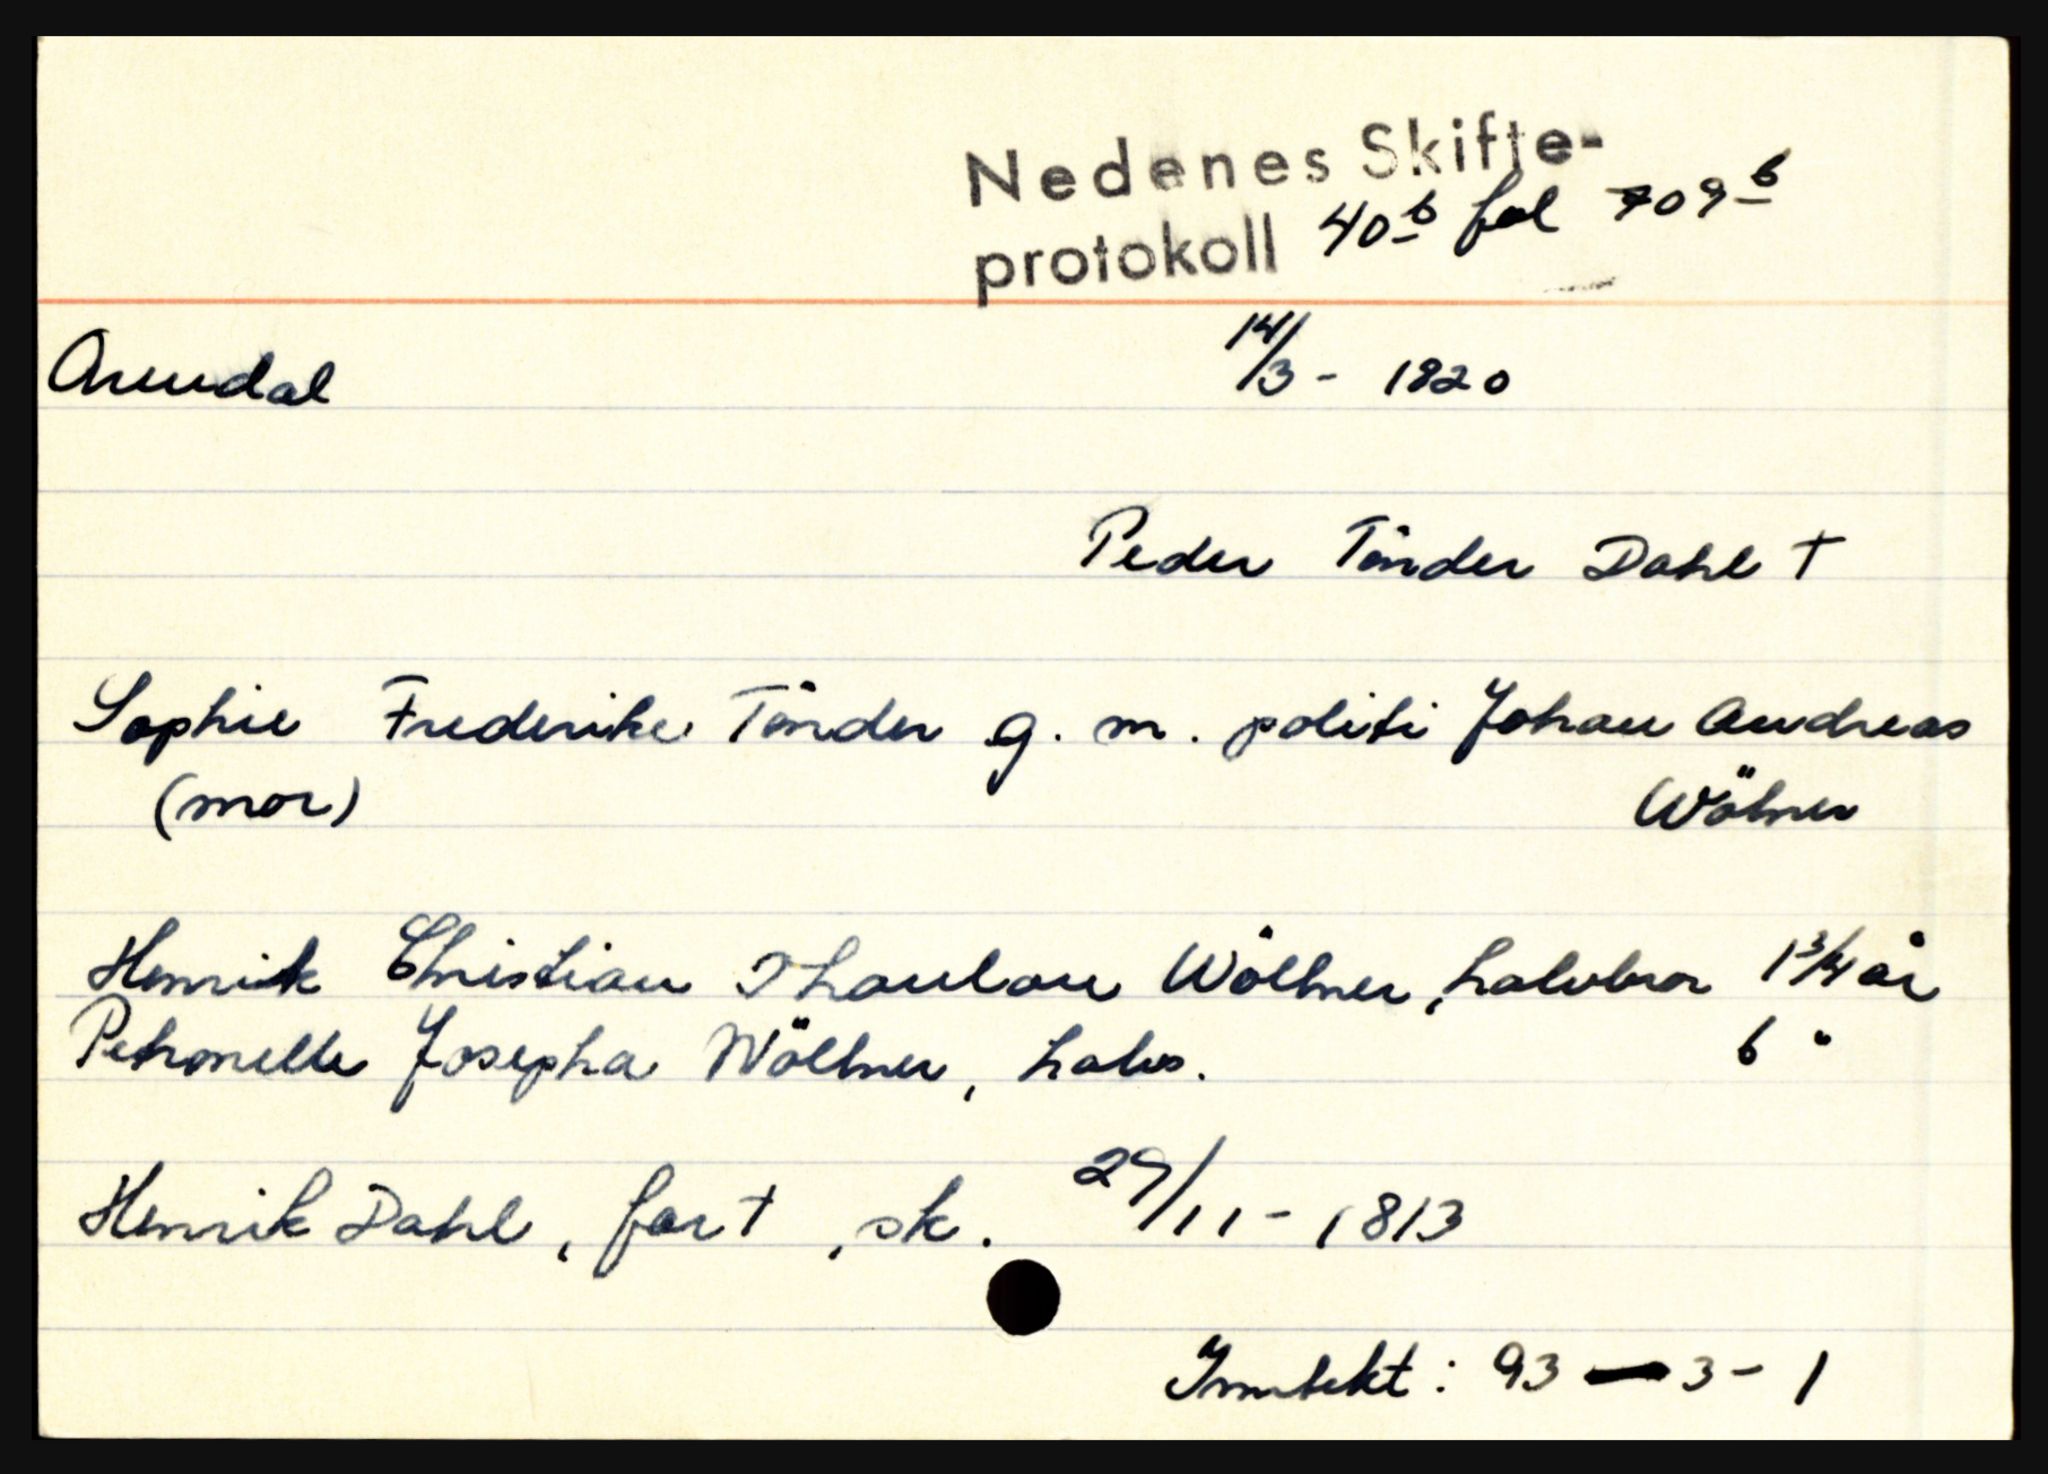 Nedenes Skifte-
protokoll 40 b fol 709 b
Arendal 14/3 - 1820
Peder Tönder Dahl †
Sophie Frederike Tönder g. m. politi Johan Andreas
(mor) Wölner
Henrik Christian Thaulow Wöllner, halvbror 1 3/4 år
Petronelle Josepha Wöllner, halvs. 6 "
Henrik Dahl, far †, sk. 29/11 - 1813
Inntekt: 93 — 3 - 1